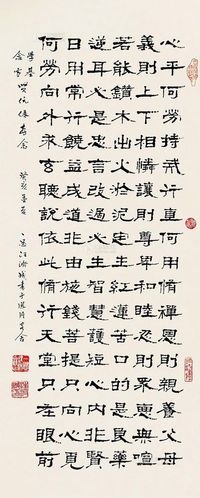 心平何勞持戒行直何用脩禪恩則親養父母
義則上下相憐讓則尊卑和睦忍則眾惡無喧
若能鑽木出火淤泥定生紅蓮苦口的是良藥
逆耳必是忠言改過必生智慧護短心內非賢
日用常行饒益成道非由施錢菩提只向心覓
何勞向外求玄聽說依此脩行天堂只在眼前
賢伉儷存念